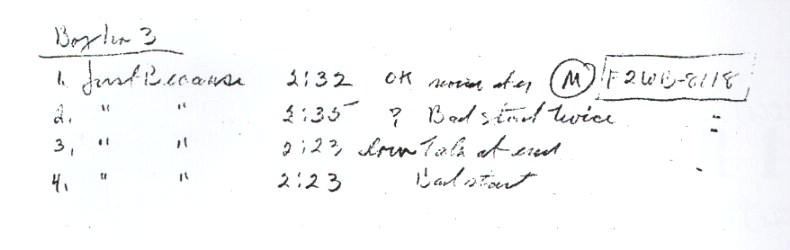 Box 3
1. Just Because 2:32 OK M F2WB-8118
2. " " 2:35 ? Bad start twice "
3. " " 2:23 Talk at end
4. " " 2:23 Bad start